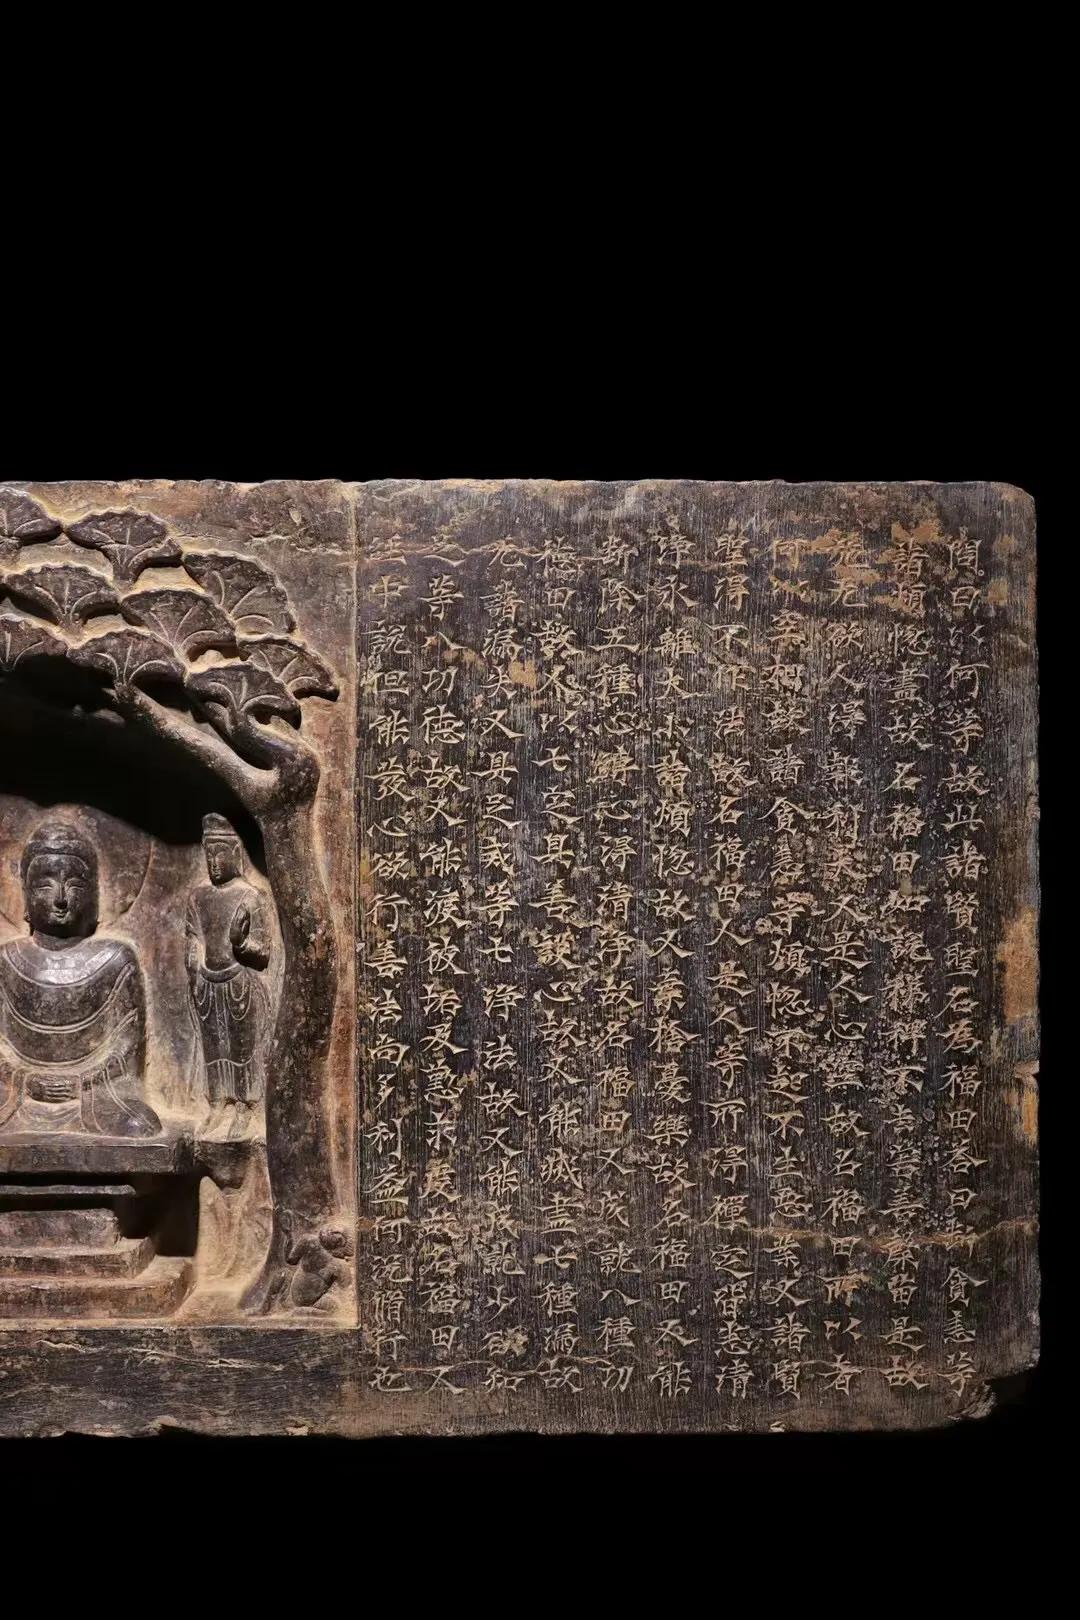 問曰以何等故此諸賢聖名為福田荅曰斷貪恚等
諸煩惚盡故名福田如說稊稗不去害善禾苗是故
施无欲人淂報利大又是人心空故名福田所以者
何以空相故諸貪恚等煩惚不起不生惡業又諸賢
聖淂不作法故名福田又是人等所淂禪定皆悉清
淨永離大小諸煩惚故又棄捨憂樂故名福田又能
斷除五種心縛心淂清淨故名福田又成就八種功
德田故又以七定具善護心故又能滅盡七種漏故
无諸漏失又具足戒等七淨法故又能成就少欲知
足等八功德故又能渡彼岸及懃求度故名福田又
生中說但能發心欲行善法尚多利益何況脩行也